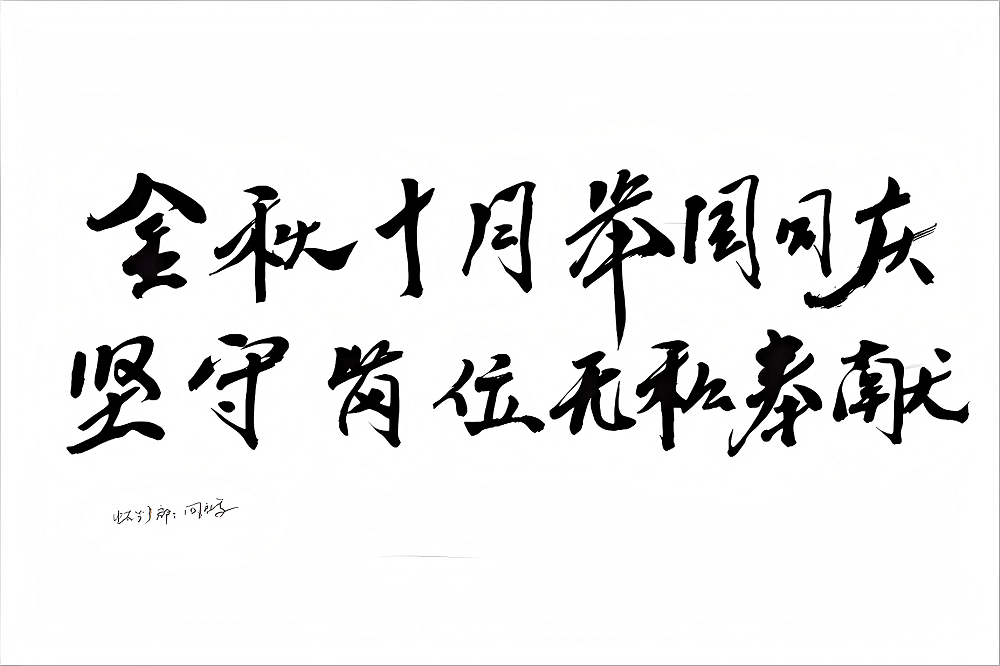 金秋十月举国同庆
坚守岗位无私奉献